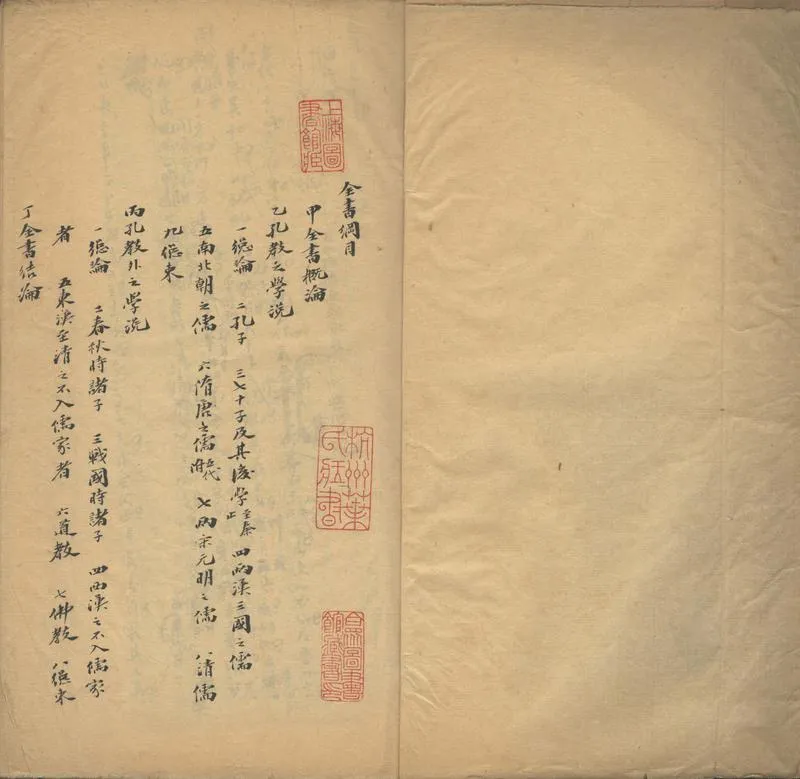 全書綱目
甲全書概論
乙孔教之學説
一總論 二孔子 三七十子及其後學至秦止 四兩漢三國之儒
五南北朝之儒 六隋唐之儒附五代 七兩宋元明之儒 八清儒
九總束
丙孔教外之學説
一總論 二春秋時諸子 三戰國時諸子 四西漢之不入儒家
者 五東漢至清之不入儒家者 六道教 七佛教 八總束
丁全書結論
上海圖書館藏
杭州葉氏藏書
合眾圖書館藏書印